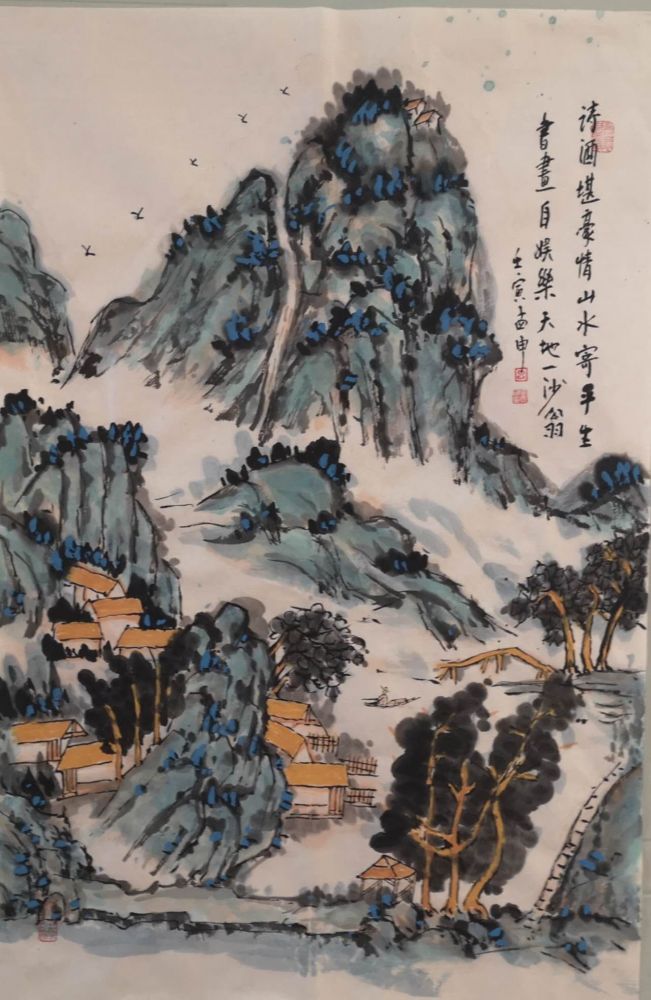 詩酒堪豪情山水寄平生
書畫自娛樂天地一沙翁
壬寅孟申